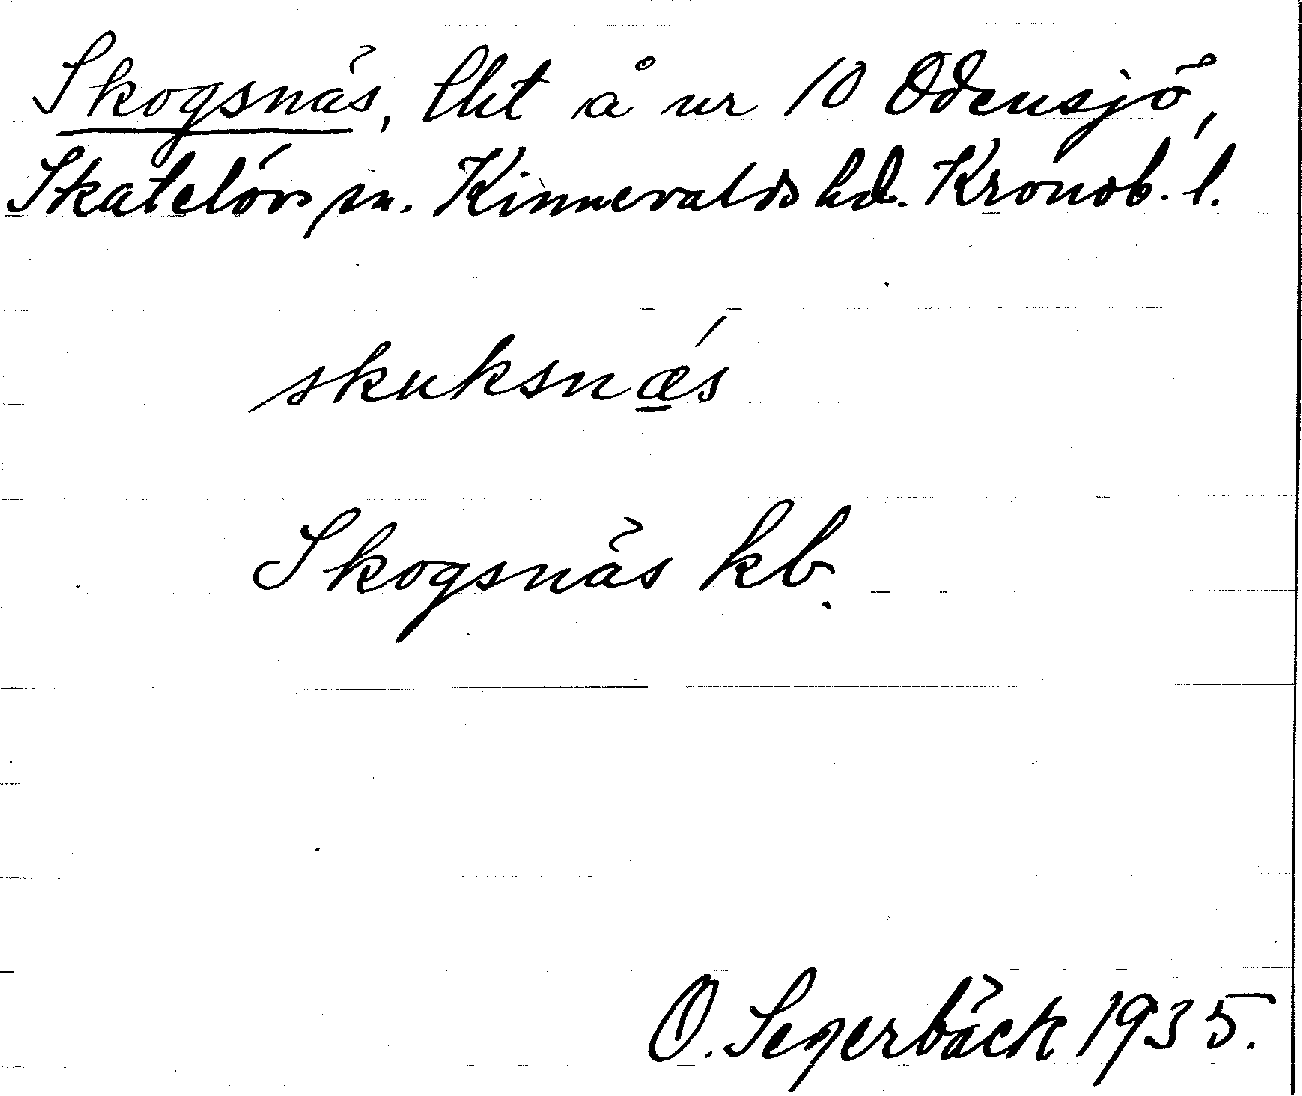 Skogsnäs, lht å nr 10 Odensjö,
Skatelövs sn. Kinnevalds hd. Kronob. l.
skuksnǽs
Skogsnäs kb.
O. Segerbäck 1935.